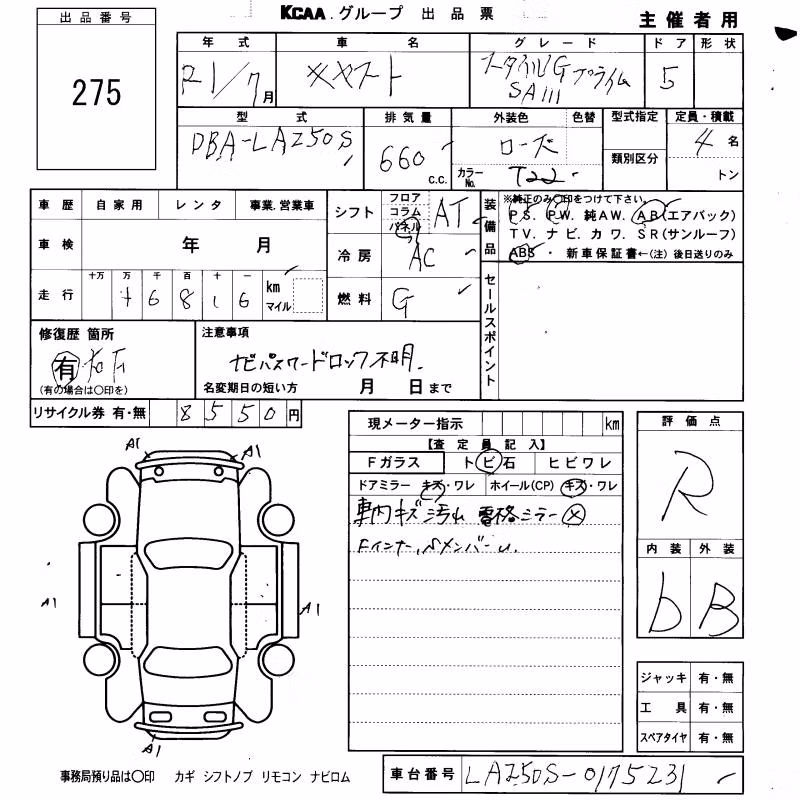 KCAA.グループ 出品票
主催者用
出品番号
275
年式 車名 グレード ドア 形状
R1/7月 キャスト スタイルG プライム SAIII 5
型式 排気量 外装色 色替 型式指定 定員・積載
DBA-LA250S 660 c.c. ローズ 4名
カラーNo. T22 類別区分 トン
車歴 自家用 レンタ 事業.営業車
シフト フロア コラム パネル AT
装備品 ※純正のみ○印をつけて下さい。
PS. PW. 純AW. AB(エアバック)
TV. ナビ. カワ. SR(サンルーフ)
ABS ・ 新車保証書←(注)後日送りのみ
車検 年 月
冷房 AC
走行 十万 万 千 百 十 一 km マイル
7 6 8 1 6
燃料 G
セールスポイント
修復歴 箇所
有
(有の場合は○印を)
注意事項
ナビパスワードロック不明.
名変期日の短い方 月 日まで
リサイクル券 有・無 8550円
現メーター指示 km
【査定員記入】
Fガラス トビ石 ヒビワレ
ドアミラー キズ・ワレ ホイール(CP) キズ・ワレ
車内キズ 汚れ 電格ミラー×
Fインナー,Sメンバーu.
評価点
R
内装 外装
b B
A1 A1
A1 A1
A1
ジャッキ 有・無
工具 有・無
スペアタイヤ 有・無
事務局預り品は○印 カギ シフトノブ リモコン ナビロム
車台番号 LA250S-0175231